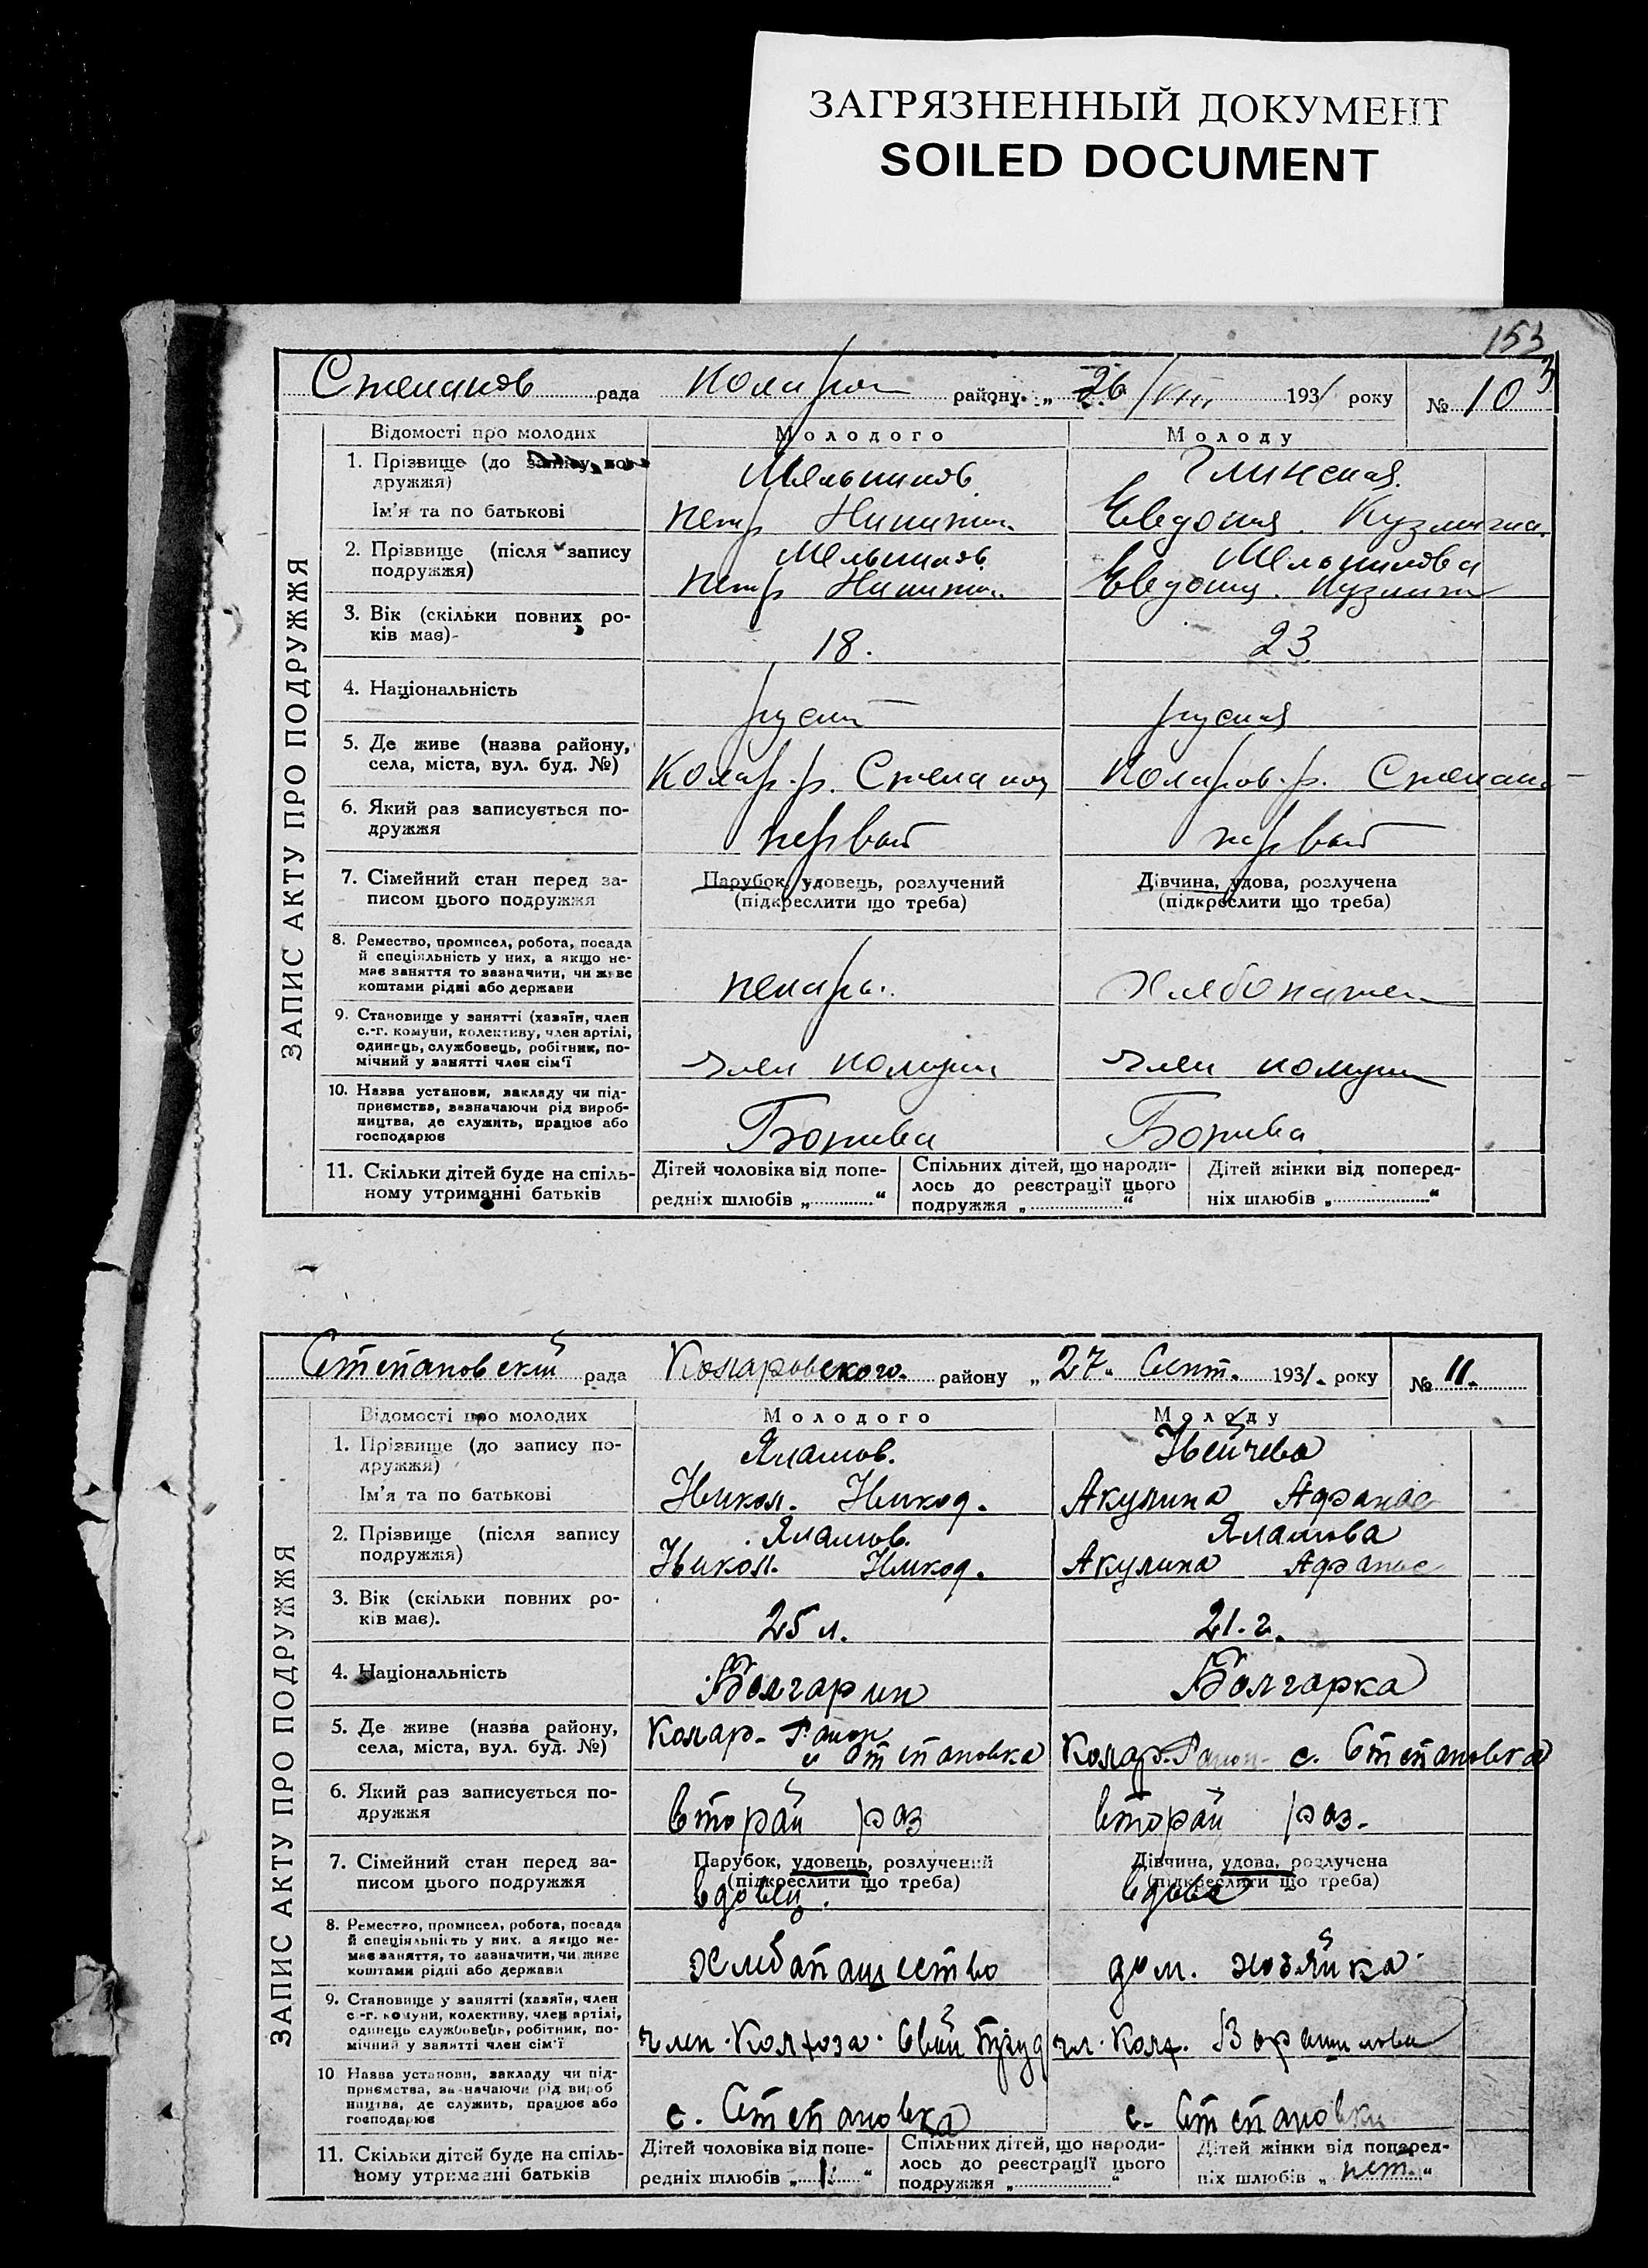 ЗАГРЯЗНЕННЫЙ ДОКУМЕНТ
SOILED DOCUMENT
153
рада району „ 26/VIII 1931 року № 10
ЗАПИС АКТУ ПРО ПОДРУЖЖЯ
Відомості про молодих
Молодого
Молоду
1. Прізвище (до запису по-
дружжя)
Мельников
Глинская.
Ім'я та по батькові
Петр Никитич
Евдокия Кузминична
2. Прізвище (після запису
подружжя)
Мельников
Мельникова
Петр Никитич
Евдокия Кузмин
3. Вік (скільки повних ро-
ків має)
18.
23
4. Національність
руская
5. Де живе (назва району,
села, міста, вул. буд. №)
Колар. р.
Коларов. р.
6. Який раз записується по-
дружжя
первый
первый
7. Сімейний стан перед за-
писом цього подружжя
Парубок, удовець, розлучений
(підкреслити що треба)
Дівчина, удова, розлучена
(підкреслити що треба)
8. Ремество, промисел, робота, посада
й спеціяльність у них, а якщо не-
має заняття то зазначити, чи живе
коштами рідні або держави
пекарь.
9. Становище у занятті (хазяїн, член
с.-г. комуни, колективу, член артілі,
одинець, службовець, робітник, по-
мічний у занятті член сім'ї
член комуны
член комуны
10. Назва установи, закладу чи під-
приємства, зазначаючи рід вироб-
ництва, де служить, працює або
господарює
11. Скільки дітей буде на спіль-
ному утриманні батьків
Дітей чоловіка від попе-
редніх шлюбів „ “
Спільних дітей, що народи-
лось до реєстрації цього
подружжя „ “
Дітей жінки від поперед-
ніх шлюбів „ “
Степановский рада Коларовского району „ 27. Сент. 1931. року № 11.
ЗАПИС АКТУ ПРО ПОДРУЖЖЯ
Відомості про молодих
Молодого
Молоду
1. Прізвище (до запису по-
дружжя)
Яламов.
Нейчева
Ім'я та по батькові
Никол. Никод.
Акулина Афанас
2. Прізвище (після запису
подружжя)
Яламов.
Яламова
Никол. Никод.
Акулина Афанас
3. Вік (скільки повних ро-
ків має).
25 л.
21. г.
4. Національність
Болгарин
Болгарка
5. Де живе (назва району,
села, міста, вул. буд. №)
Колар- Район
с Степановка
Колар. Район- с. Степановка
6. Який раз записується по-
дружжя
вторай раз
вторай раз.
7. Сімейний стан перед за-
писом цього подружжя
Парубок, удовець, розлучений
(підкреслити що треба)
вдовец.
Дівчина, удова, розлучена
(підкреслити що треба)
вдова
8. Ремество, промисел, робота, посада
й спеціяльність у них, а якщо не-
має заняття, то зазначити, чи живе
коштами рідні або держави
хлебапашество
дом. хозяйка
9. Становище у занятті (хазяїн, член
с.-г. комуни, колективу, член артілі,
одинець службовець, робітник, по-
мічний у занятті член сім'ї
член Колхоза Свой Труд
чл. Колх. Ворашилова
10 Назва установи, закладу чи під-
приємства, зазначаючи рід вироб
ництва, де служить, працює або
господарює
с. Степановка
с. Степановки
11. Скільки дітей буде на спіль-
ному утриманні батьків
Дітей чоловіка від попе-
редніх шлюбів „ 1 “
Спільних дітей, що народи-
лось до реєстрації цього
подружжя „ “
Дітей жінки від поперед-
ніх шлюбів „ нет. “